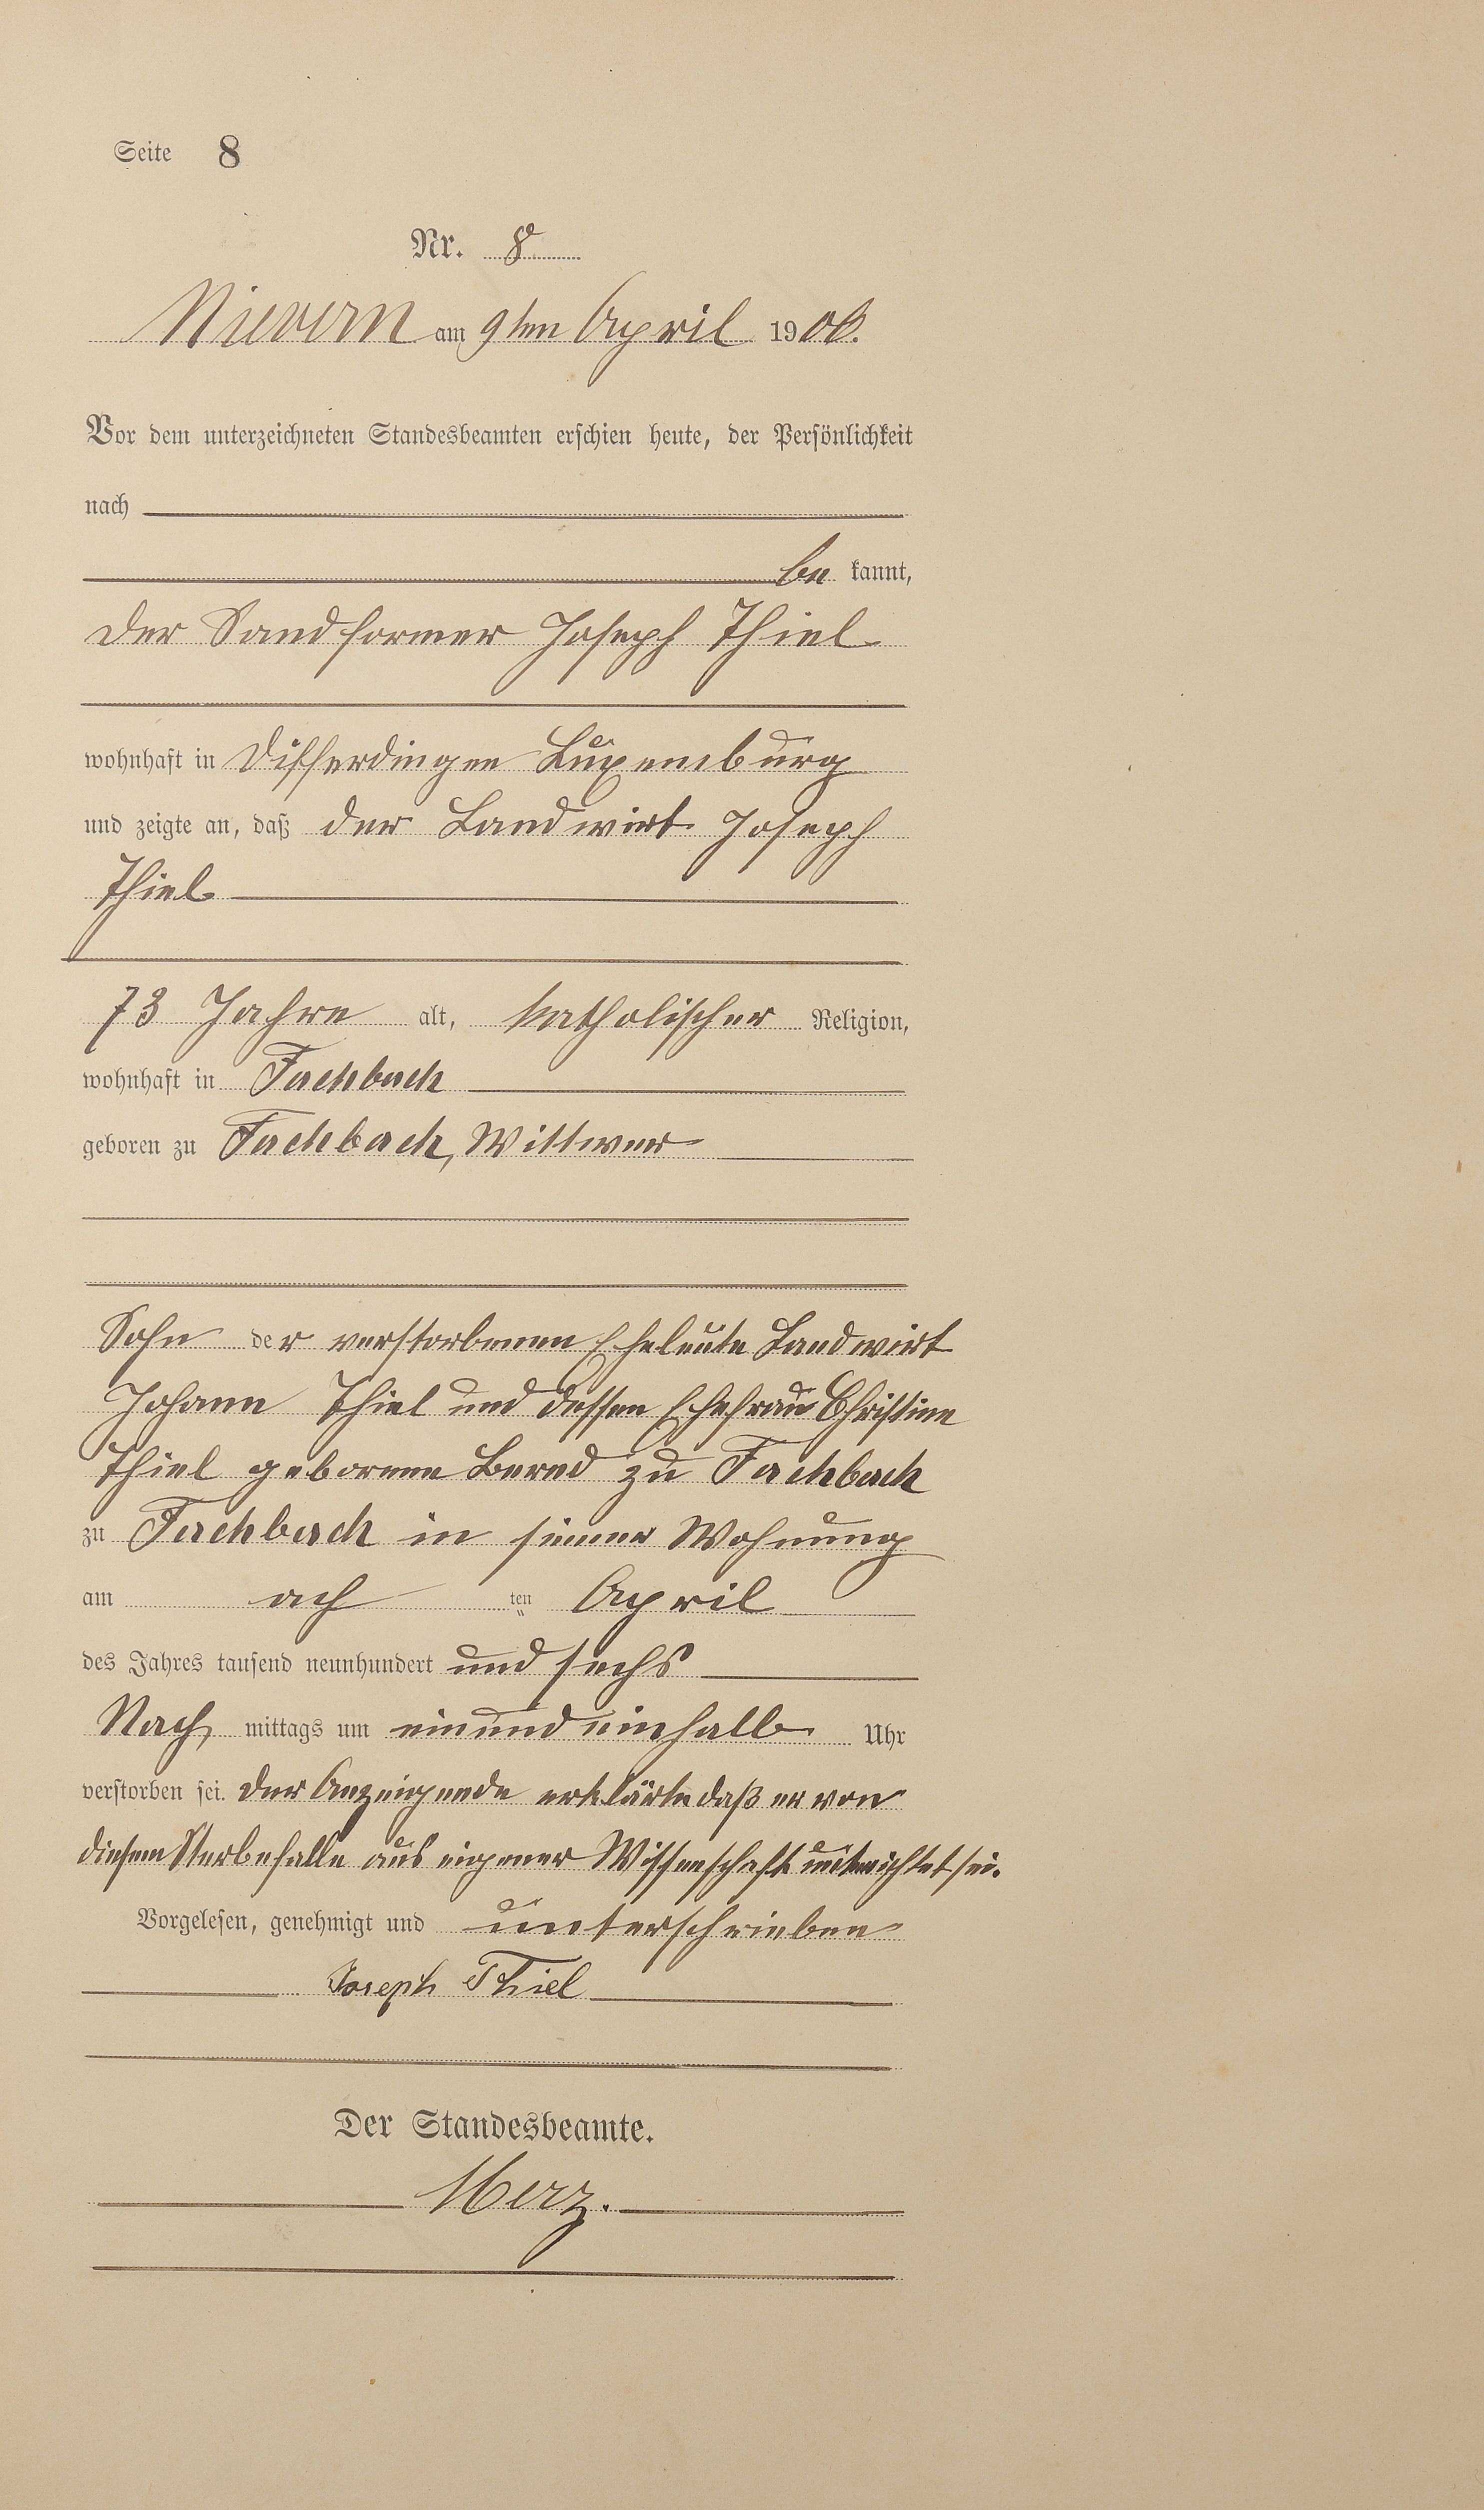 Seite 8
Nr. 8
Nievern am 9ten April 1906.
Vor dem unterzeichneten Standesbeamten erschien heute, der Persönlichkeit
nach
be kannt,
der Sandformer Joseph Thiel
wohnhaft in Differdingen Luxemburg
und zeigte an, daß der Landwirt Joseph
Thiel
73 Jahre alt, katholischer Religion,
wohnhaft in Fachbach
geboren zu Fachbach, Wittwer
Sohn der verstorbenen Eheleute Landwirt
Johann Thiel und dessen Ehefrau Christine
Thiel geborene Bernd zu Fachbach
zu Fachbach in seiner Wohnung
am ach ten April
des Jahres tausend neunhundert und sechs
Nach mittags um einundeinhalb Uhr
verstorben sei. Der Anzeigende erklärte daß er von
diesem Sterbefalle aus eigener Wissenschaft unterrichtet sei.
Vorgelesen, genehmigt und unterschrieben
Joseph Thiel
Der Standesbeamte.
Merz.